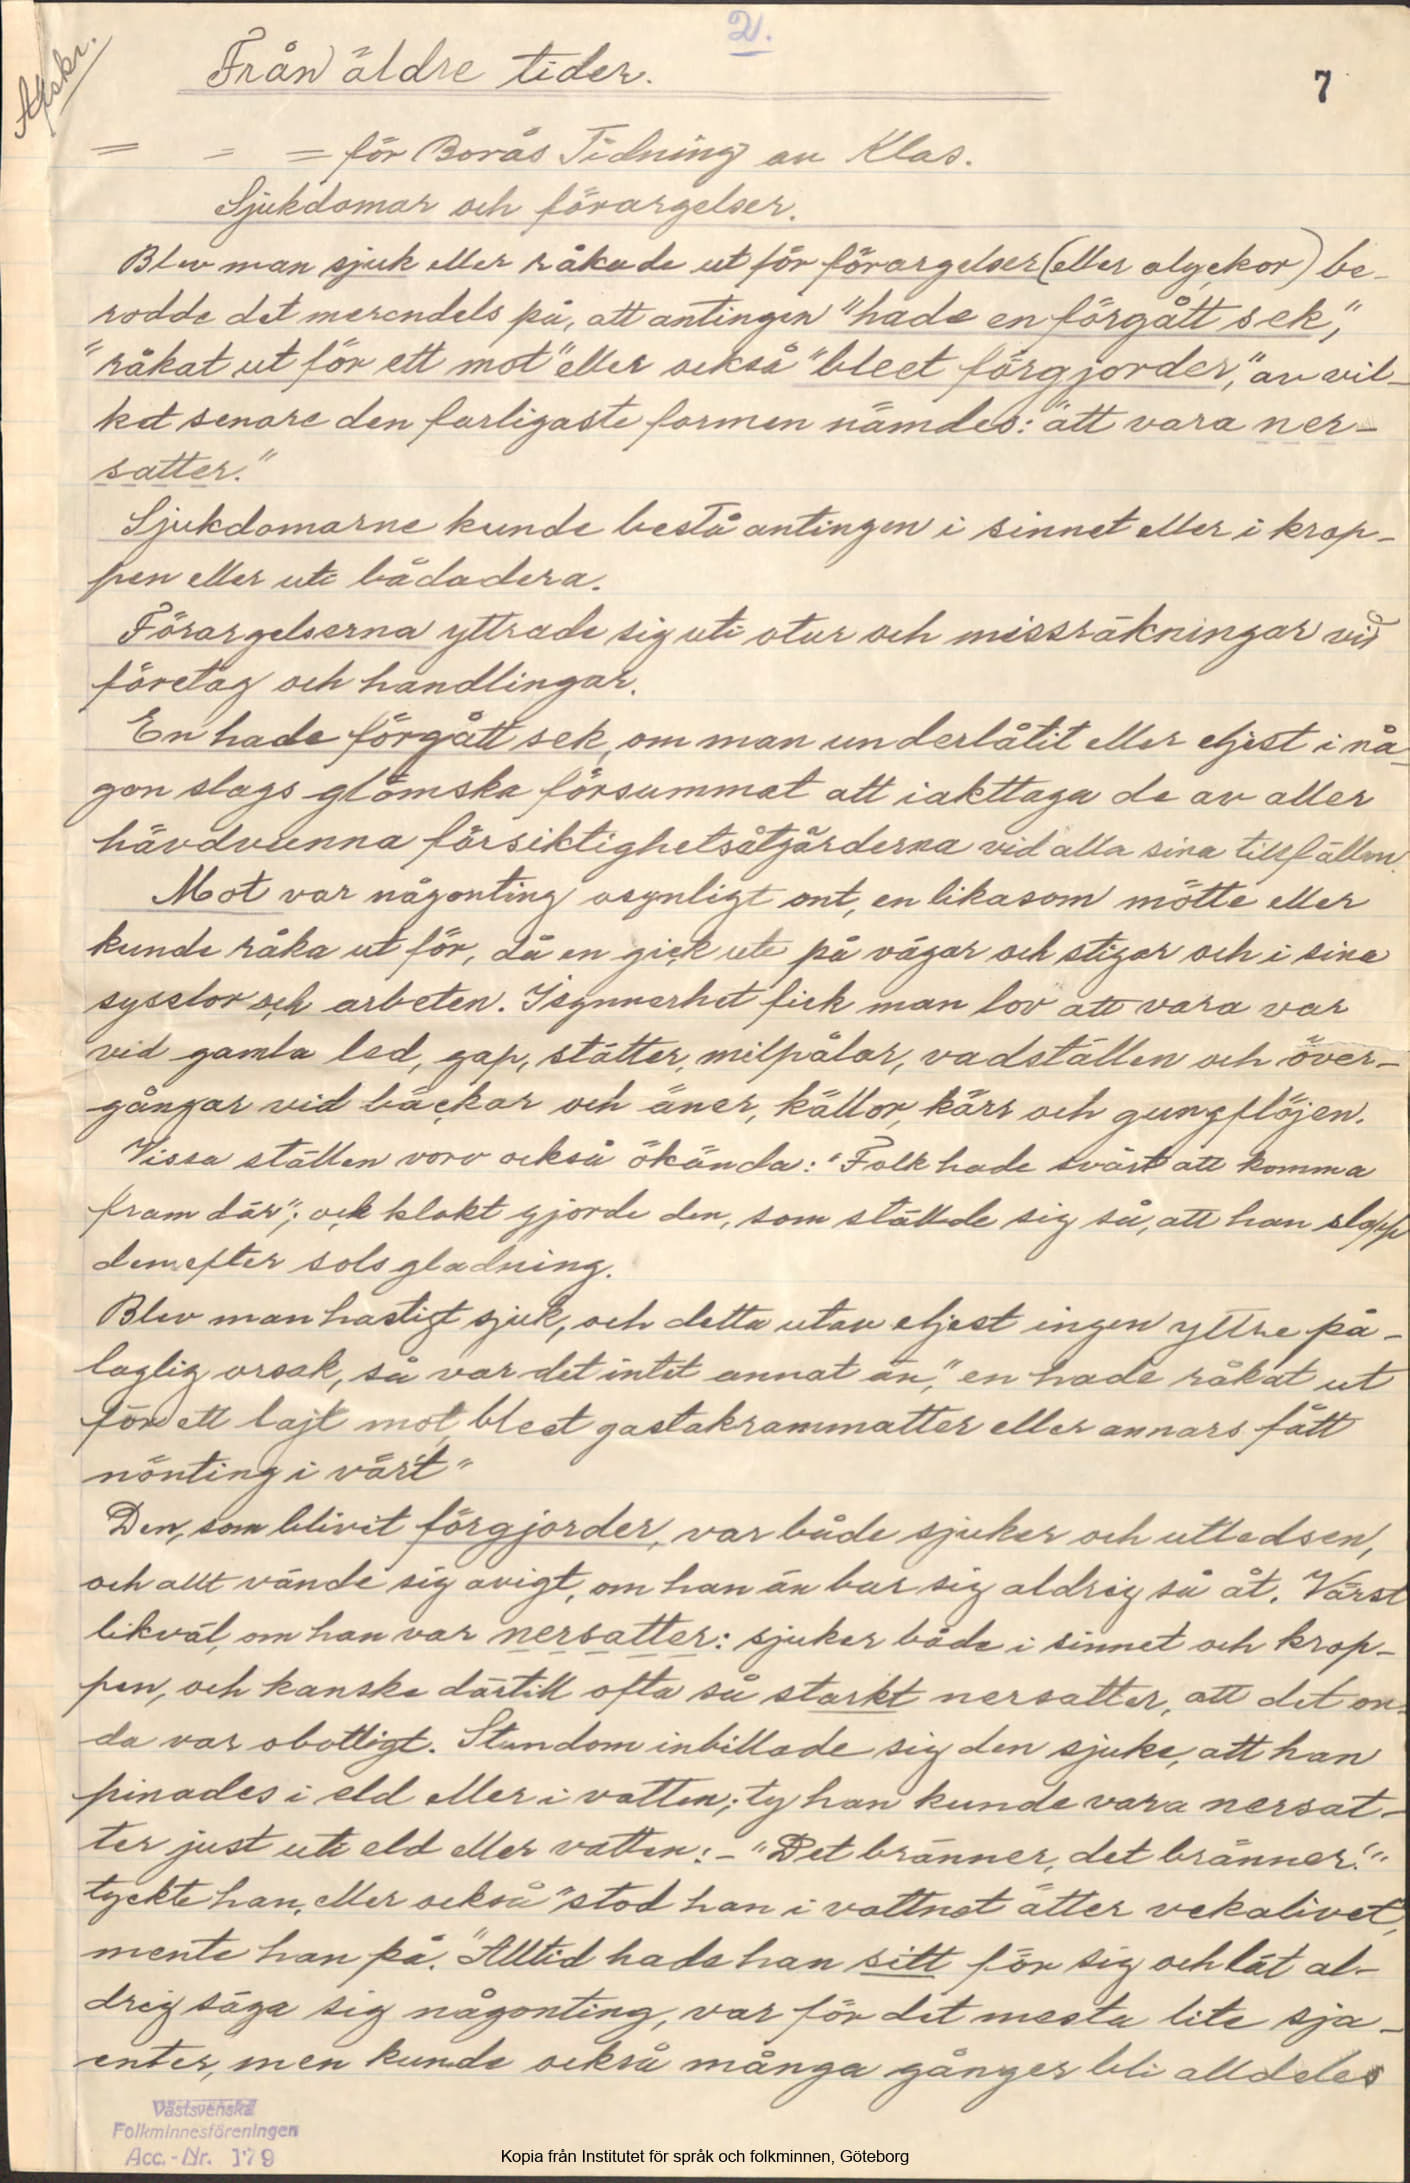 2.
Afskr.
Från äldre tider.
7
= = = för Borås Tidning av Klas.
Sjukdomar och förargelser.
Blev man sjuk eller råkade ut för förargelser (eller olyckor) be-
rodde det merendels på, att antingen "hade en förgått sek",
"råkat ut för ett mot" eller också "bleet förgjorder", av vil-
ket senare den farligaste formen nämdes: "att vara ner-
satter."
Sjukdomarne kunde bestå antingen i sinnet eller i krop-
pen eller uti bådadera.
Förargelserna yttrade sig uti otur och missräkningar vid
företag och handlingar.
En hade förgått sek, om man underlåtit eller eljest i nå-
gon slags glömska försummat att iakttaga de av aller
hävdvunna försiktighetsåtgärderna vid alla sina tillfällen.
Mot var någonting osynligt ont, en likasom mötte eller
kunde råka ut för, då en gick ute på vägar och stigar och i sina
sysslor och arbeten. Isynnerhet fick man lov att vara var
vid gamla led, gap, stätter, milpålar, vadställen och över-
gångar vid bäckar och åner, källor, kärr och gungflöjen.
Vissa ställen voro också ökända: "Folk hade svårt att komma
fram där"; och klokt gjorde den, som ställde sig så, att han slapp
dem efter solsgladning.
Blev man hastigt sjuk, och detta utav eljest ingen yttre på-
taglig orsak, så var det intet annat än, "en hade råkat ut
för ett lajt mot, bleet gastakrammatter eller annars fått
nönting i vär't"
Den, som blivit förgjorder, var både sjuker och utledsen,
och allt vände sig avigt, om han än bar sig aldrig så åt. Värst
likväl, om han var nersatter: sjuker både i sinnet och krop-
pen, och kanske därtill ofta så starkt nersatter, att det on-
da var obotligt. Stundom inbillade sig den sjuke, att han
pinades i eld eller i vatten; ty han kunde vara nersat-
ter just uti eld eller vatten: - "Det bränner, det bränner!"
tyckte han, eller också "stod han i vattnet åtter vekalivet",
mente han på. "Alltid hade han sitt för sig och lät al-
drig säga sig någonting, var för det mesta lite sja-
enter, men kunde också många gånger bli alldeles
Västsvenska
Folkminnesföreningen
Acc.-Nr. 179
Kopia från Institutet för språk och folkminnen, Göteborg